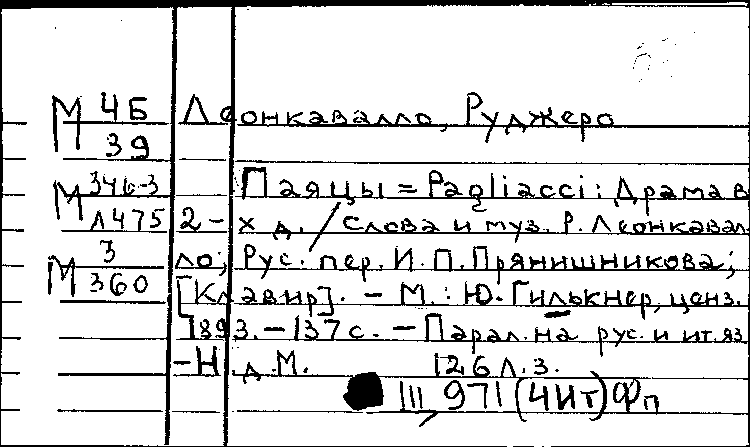 М 4Б/39 Леонкавалло, Руджеро
М 346-3/Л475 Паяцы = Pagliacci: Драма в
2-х д. / Слова и муз. Р. Леонкавал-
М 3/360 ло; Рус. пер. И. П. Прянишникова;
[Клавир]. - М.: Ю. Гилькнер, ценз.
1893. - 137 с. - Парал. на рус. и ит. яз.
- Н.д.М. 126 л.з.
III, 971 (4Ит) Фп